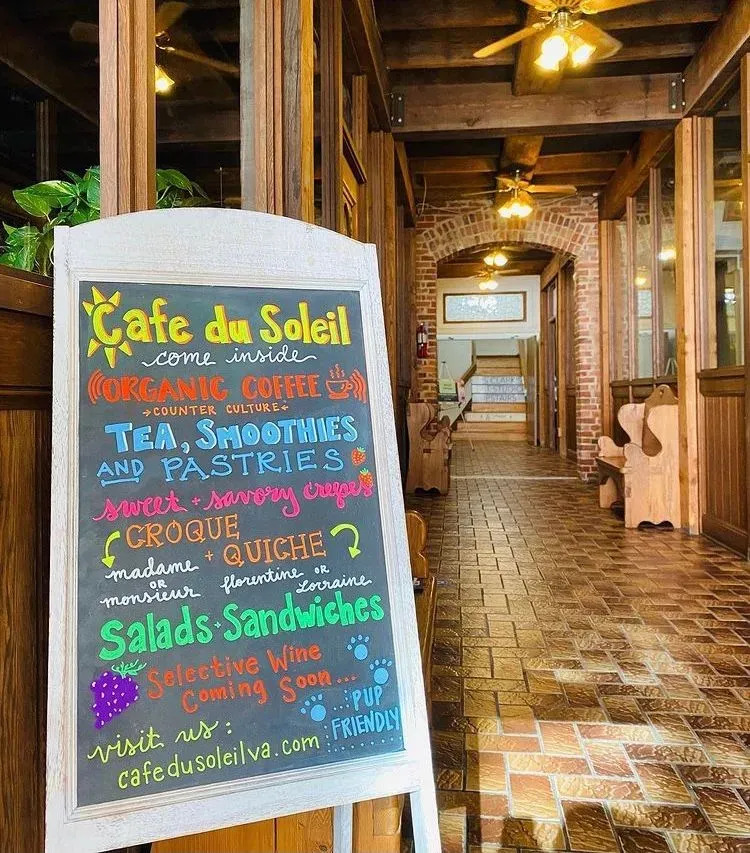 Cafe du Soleil
come inside
ORGANIC COFFEE
COUNTER CULTURE
TEA, SMOOTHIES
AND PASTRIES
sweet + savory crepes
CROQUE
+ QUICHE
madame
OR
monsieur
florentine OR
Lorraine
Salads · Sandwiches
Selective Wine
Coming Soon...
PUP
FRIENDLY
visit us:
cafedusoleilva.com